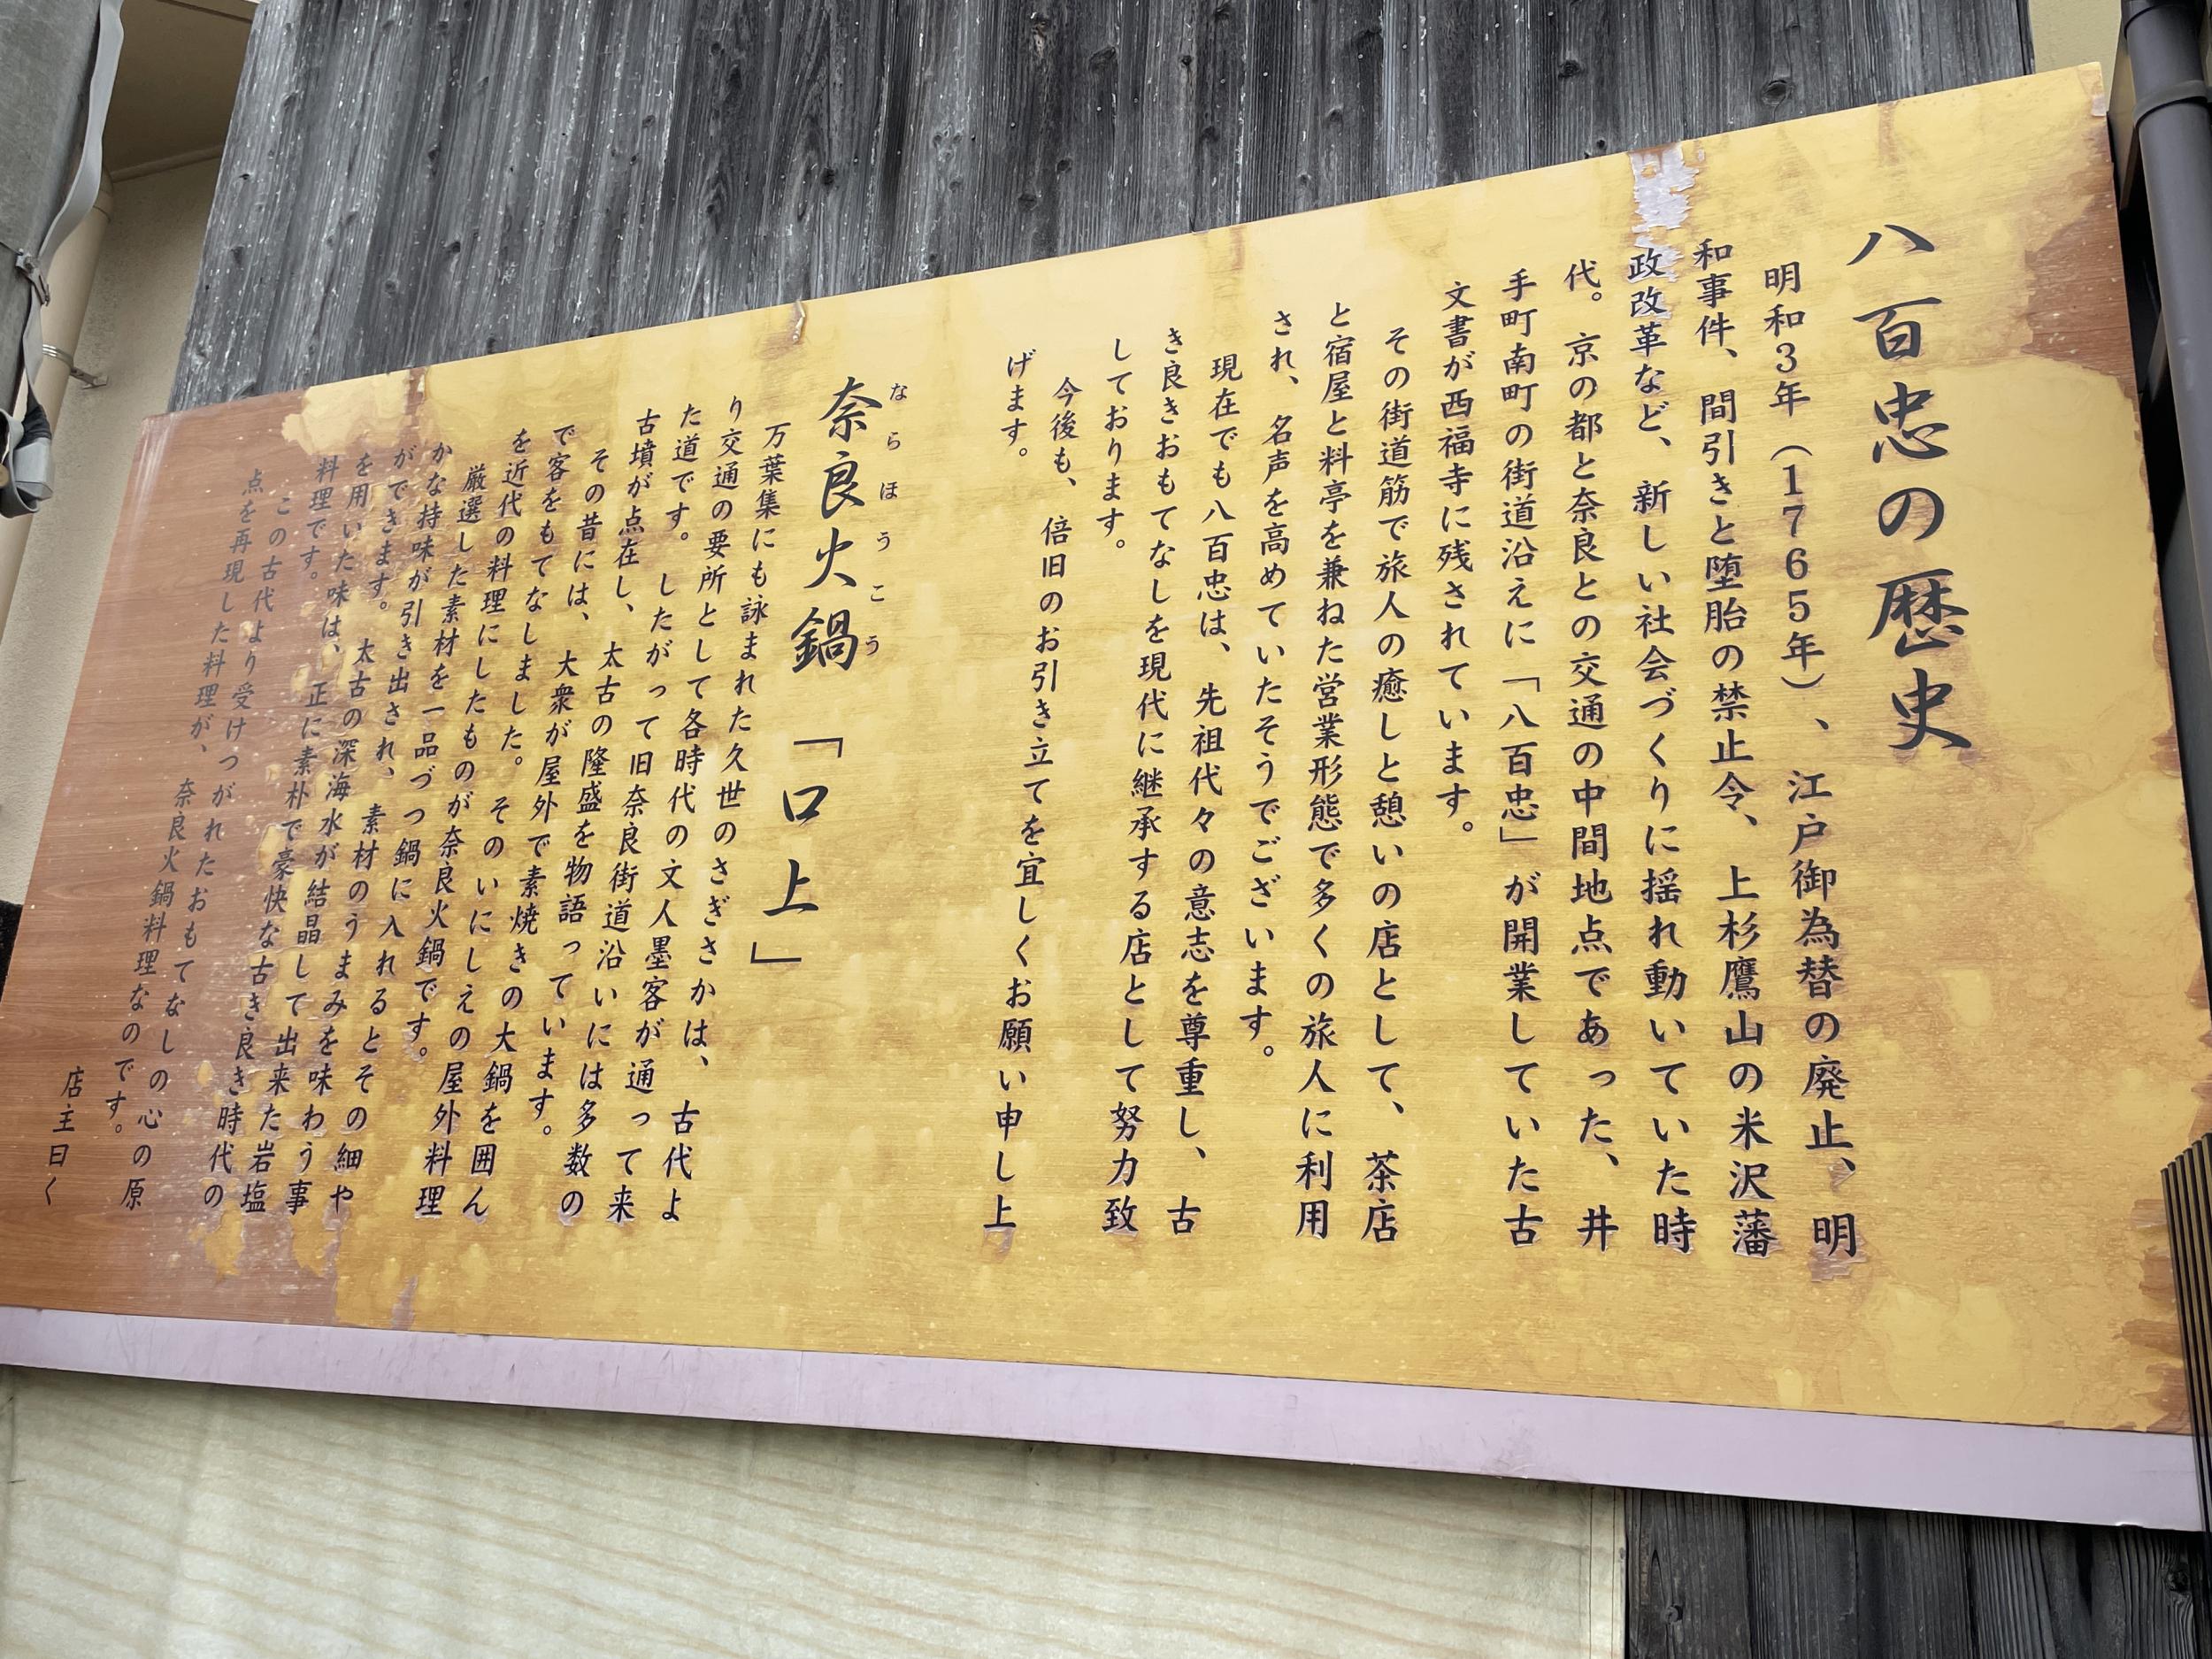 八百忠の歴史
明和3年（1765年）、江戸御為替の廃止、明
和事件、間引きと堕胎の禁止令、上杉鷹山の米沢藩
政改革など、新しい社会づくりに揺れ動いていた時
代。京の都と奈良との交通の中間地点であった、井
手町南町の街道沿えに「八百忠」が開業していた古
文書が西福寺に残されています。
その街道筋で旅人の癒しと憩いの店として、茶店
と宿屋と料亭を兼ねた営業形態で多くの旅人に利用
され、名声を高めていたそうでございます。
現在でも八百忠は、先祖代々の意志を尊重し、古
き良きおもてなしを現代に継承する店として努力致
しております。
今後も、倍旧のお引き立てを宜しくお願い申し上
げます。
ならほうこう
奈良火鍋「口上」
万葉集にも詠まれた久世のさぎさかは、古代よ
り交通の要所として各時代の文人墨客が通って来
た道です。したがって旧奈良街道沿いには多数の
古墳が点在し、太古の隆盛を物語っています。
その昔には、大衆が屋外で素焼きの大鍋を囲ん
で客をもてなしました。そのいにしえの屋外料理
を近代の料理にしたものが奈良火鍋です。
厳選した素材を一品づつ鍋に入れるとその細や
かな持味が引き出され、素材のうまみを味わう事
ができます。太古の深海水が結晶して出来た岩塩
を用いた味は、正に素朴で豪快な古き良き時代の
料理です。
この古代より受けつがれたおもてなしの心の原
点を再現した料理が、奈良火鍋料理なのです。
店主曰く